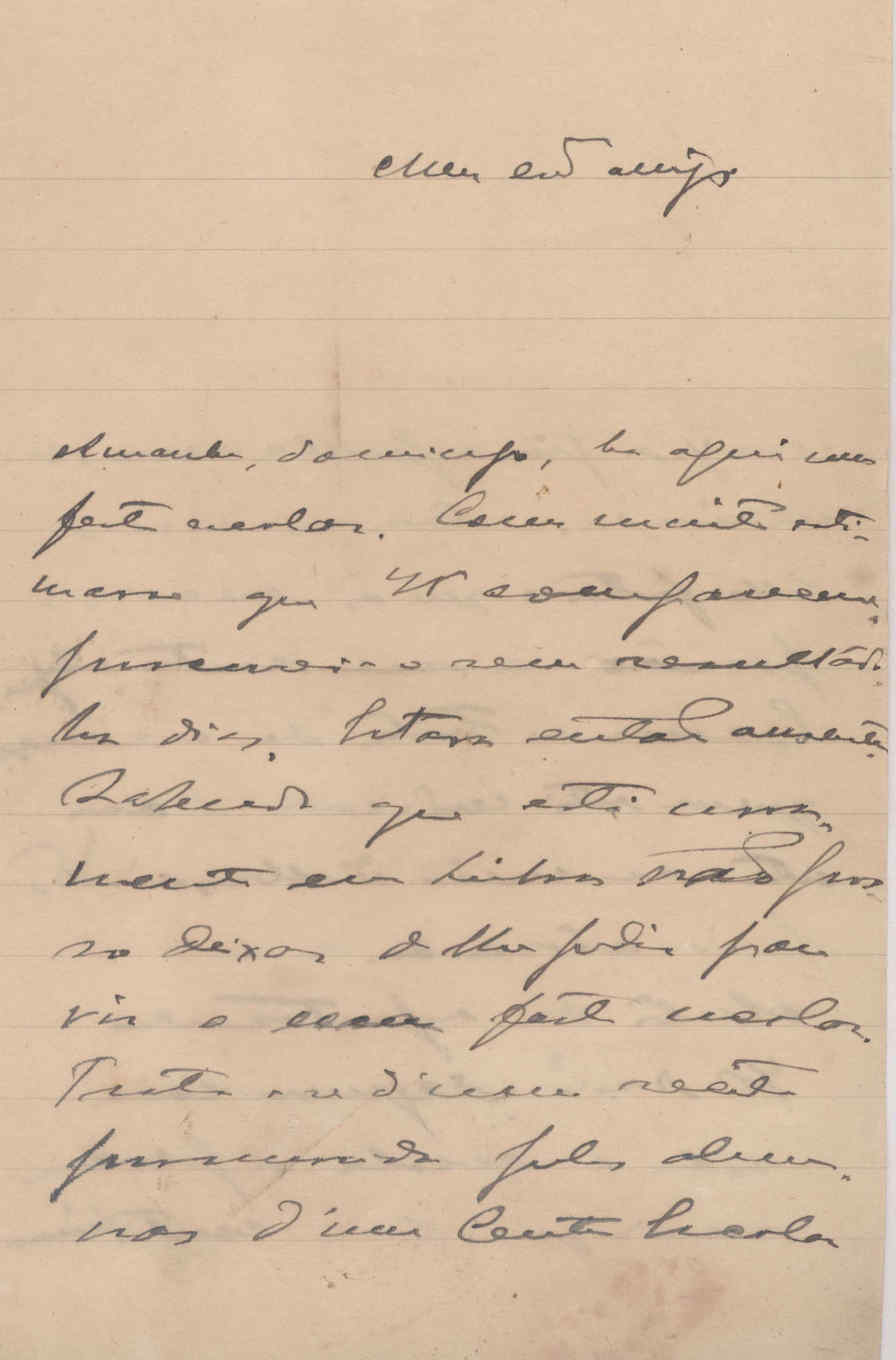 Meu cro amigo
Amanhã, domingo, ha aqui uma
festa escolar. Como muito esti-
masse que V. comparecesse,
procurei-o sem resultado
ha dias. Estava então ausente.
Sabendo que está nova-
mente em Lisboa não pos-
so deixar de lhe pedir para
vir a essa festa escolar.
Trata-se d'uma recita
promovida pelos alum-
nos d'um Centro Escolar